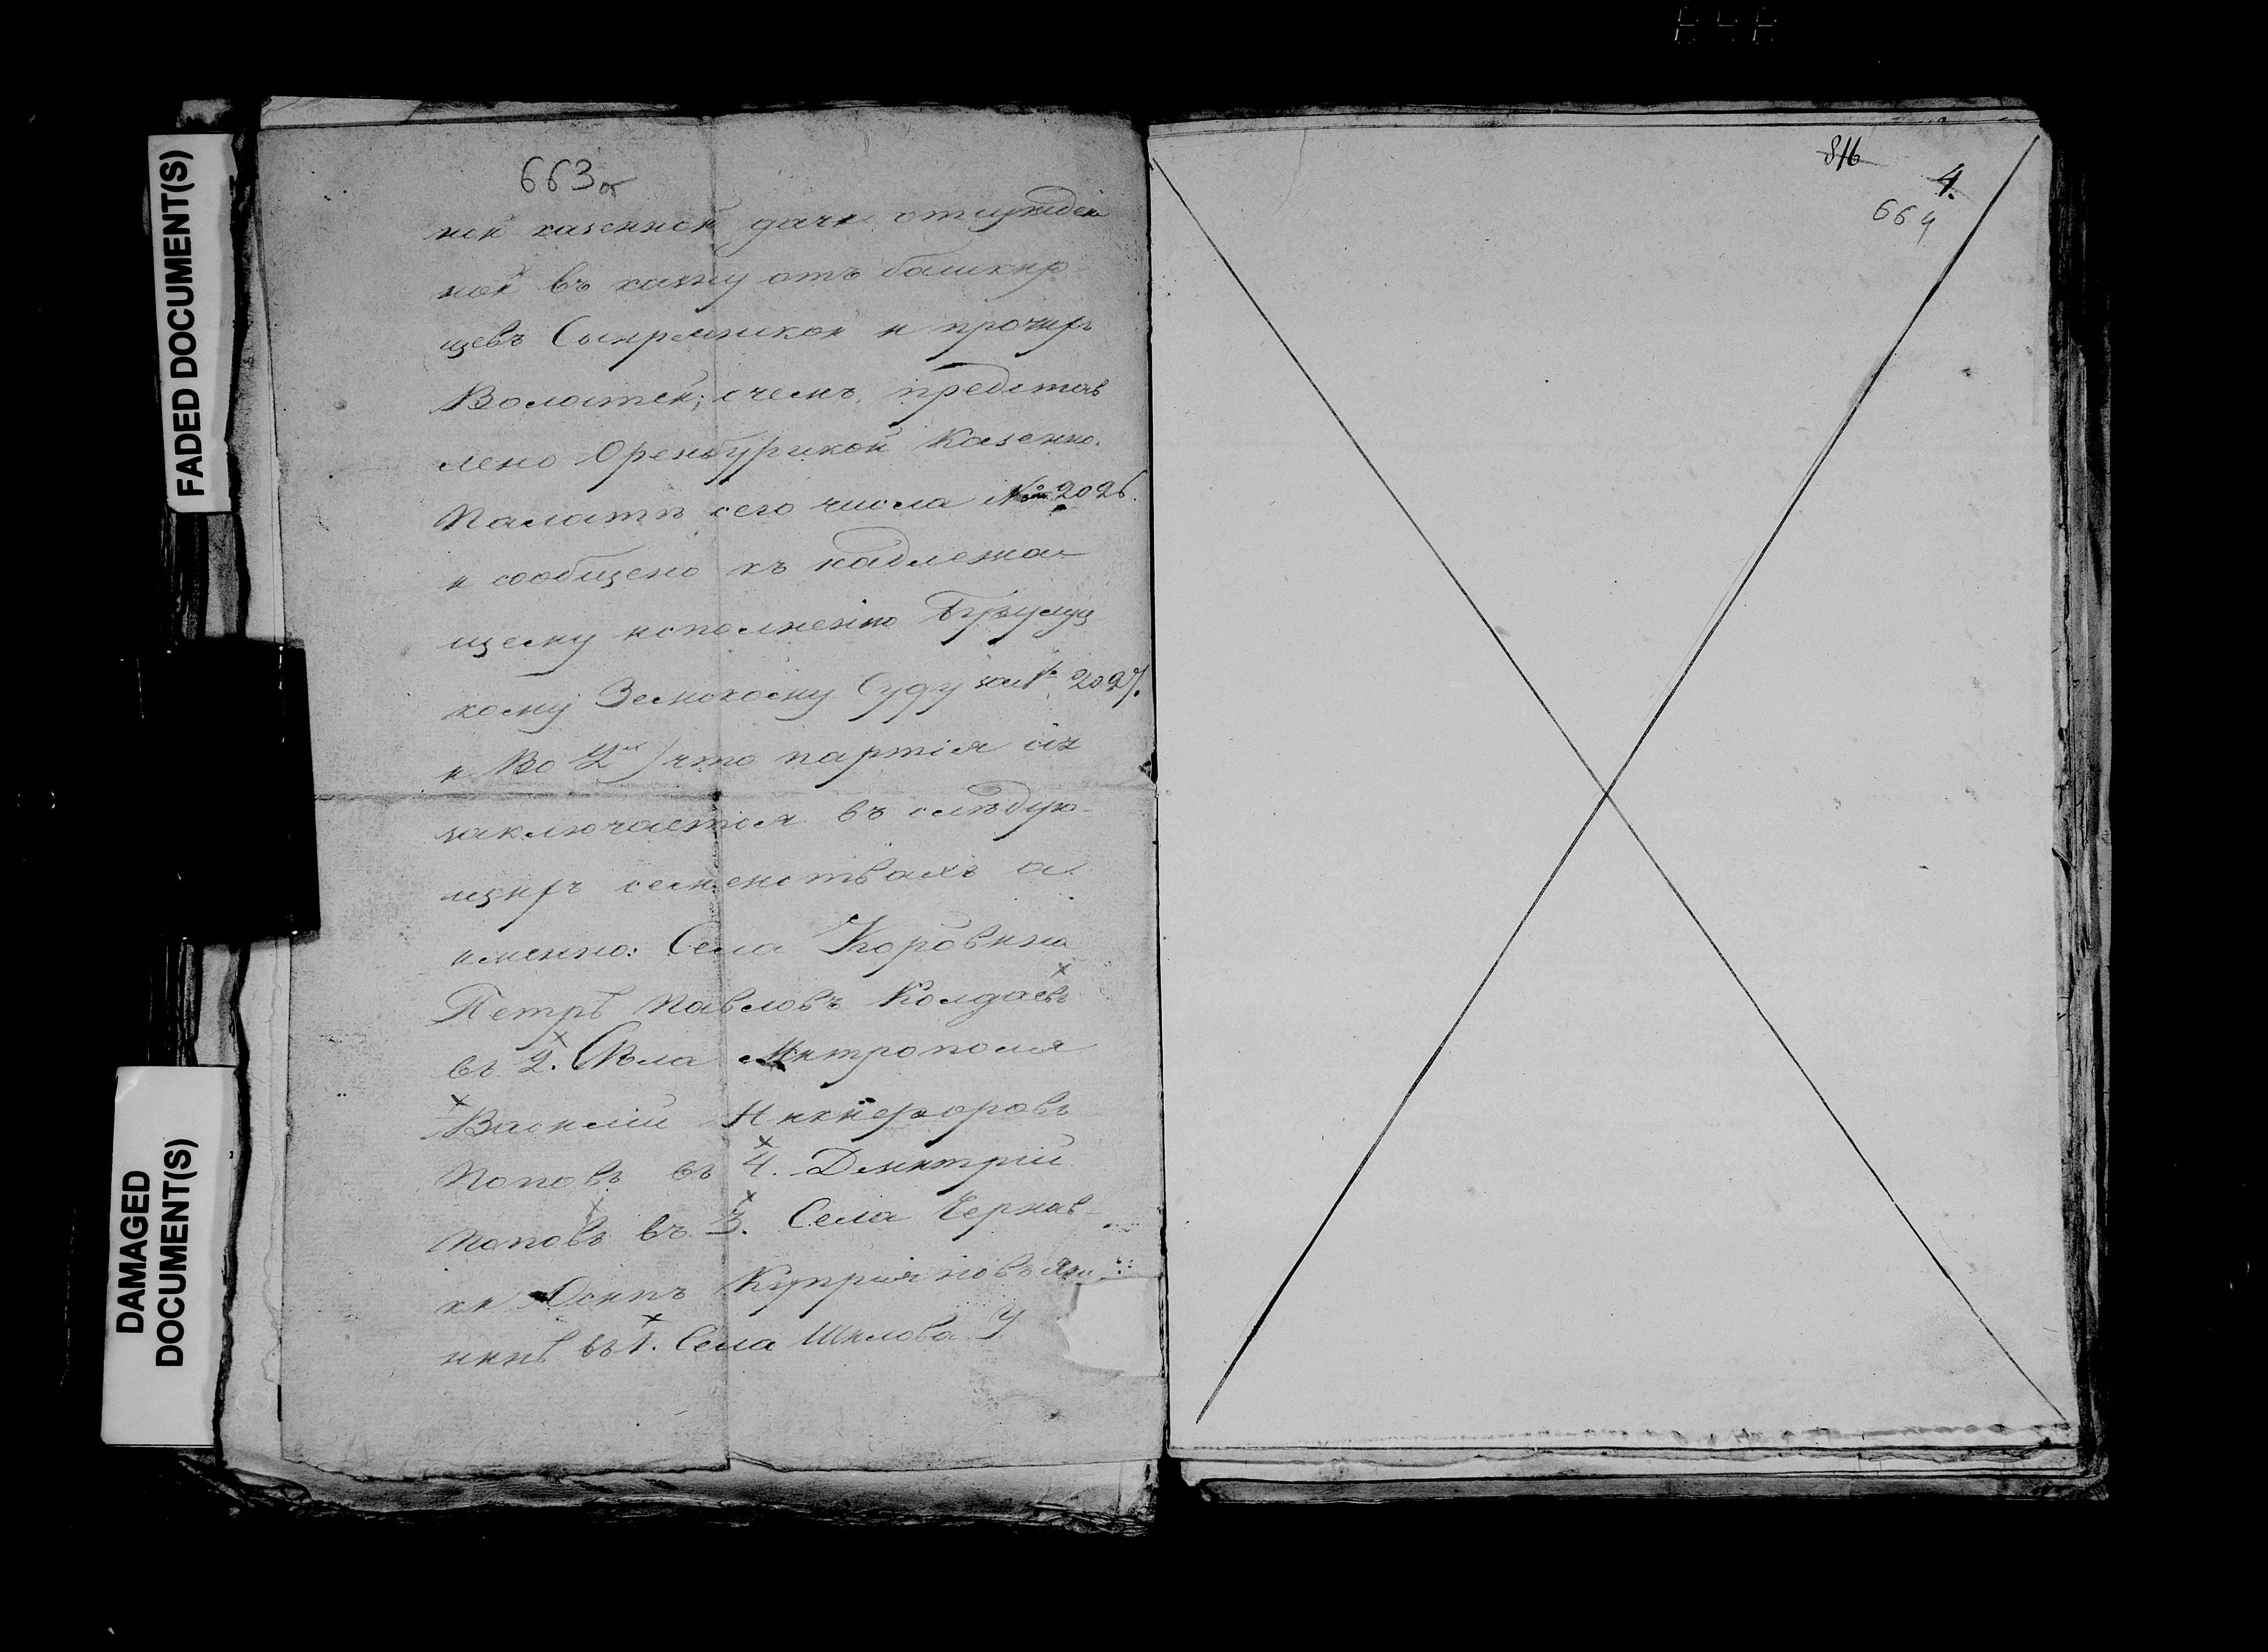 FADED DOCUMENT(S)
DAMAGED
DOCUMENT(S)
663об
ней казенной дачи отсужден
ной въ казну отъ башкир-
цевъ Сынрянской и прочихъ
Волостей, о чемъ представ
лено Оренбургской Казенно.
Палатѣ сего числа № 2026.
и сообщено къ надлежа-
щему исполненію
кому Земскому Суду за № 2027.
и Во 2х) что партія сія
заключается въ слѣдую-
щихъ семействахъ а
именно: Села Коровина
Петръ Павловъ Колдаевъ
въ 2. Села Митрополя
Василій Никифоровъ
Поповъ въ 4. Дмитрій
Поповъ въ 3. Села Чернав-
ки Осипъ Купріяновъ
никъ въ 1. Села Шилова У
816
4.
664